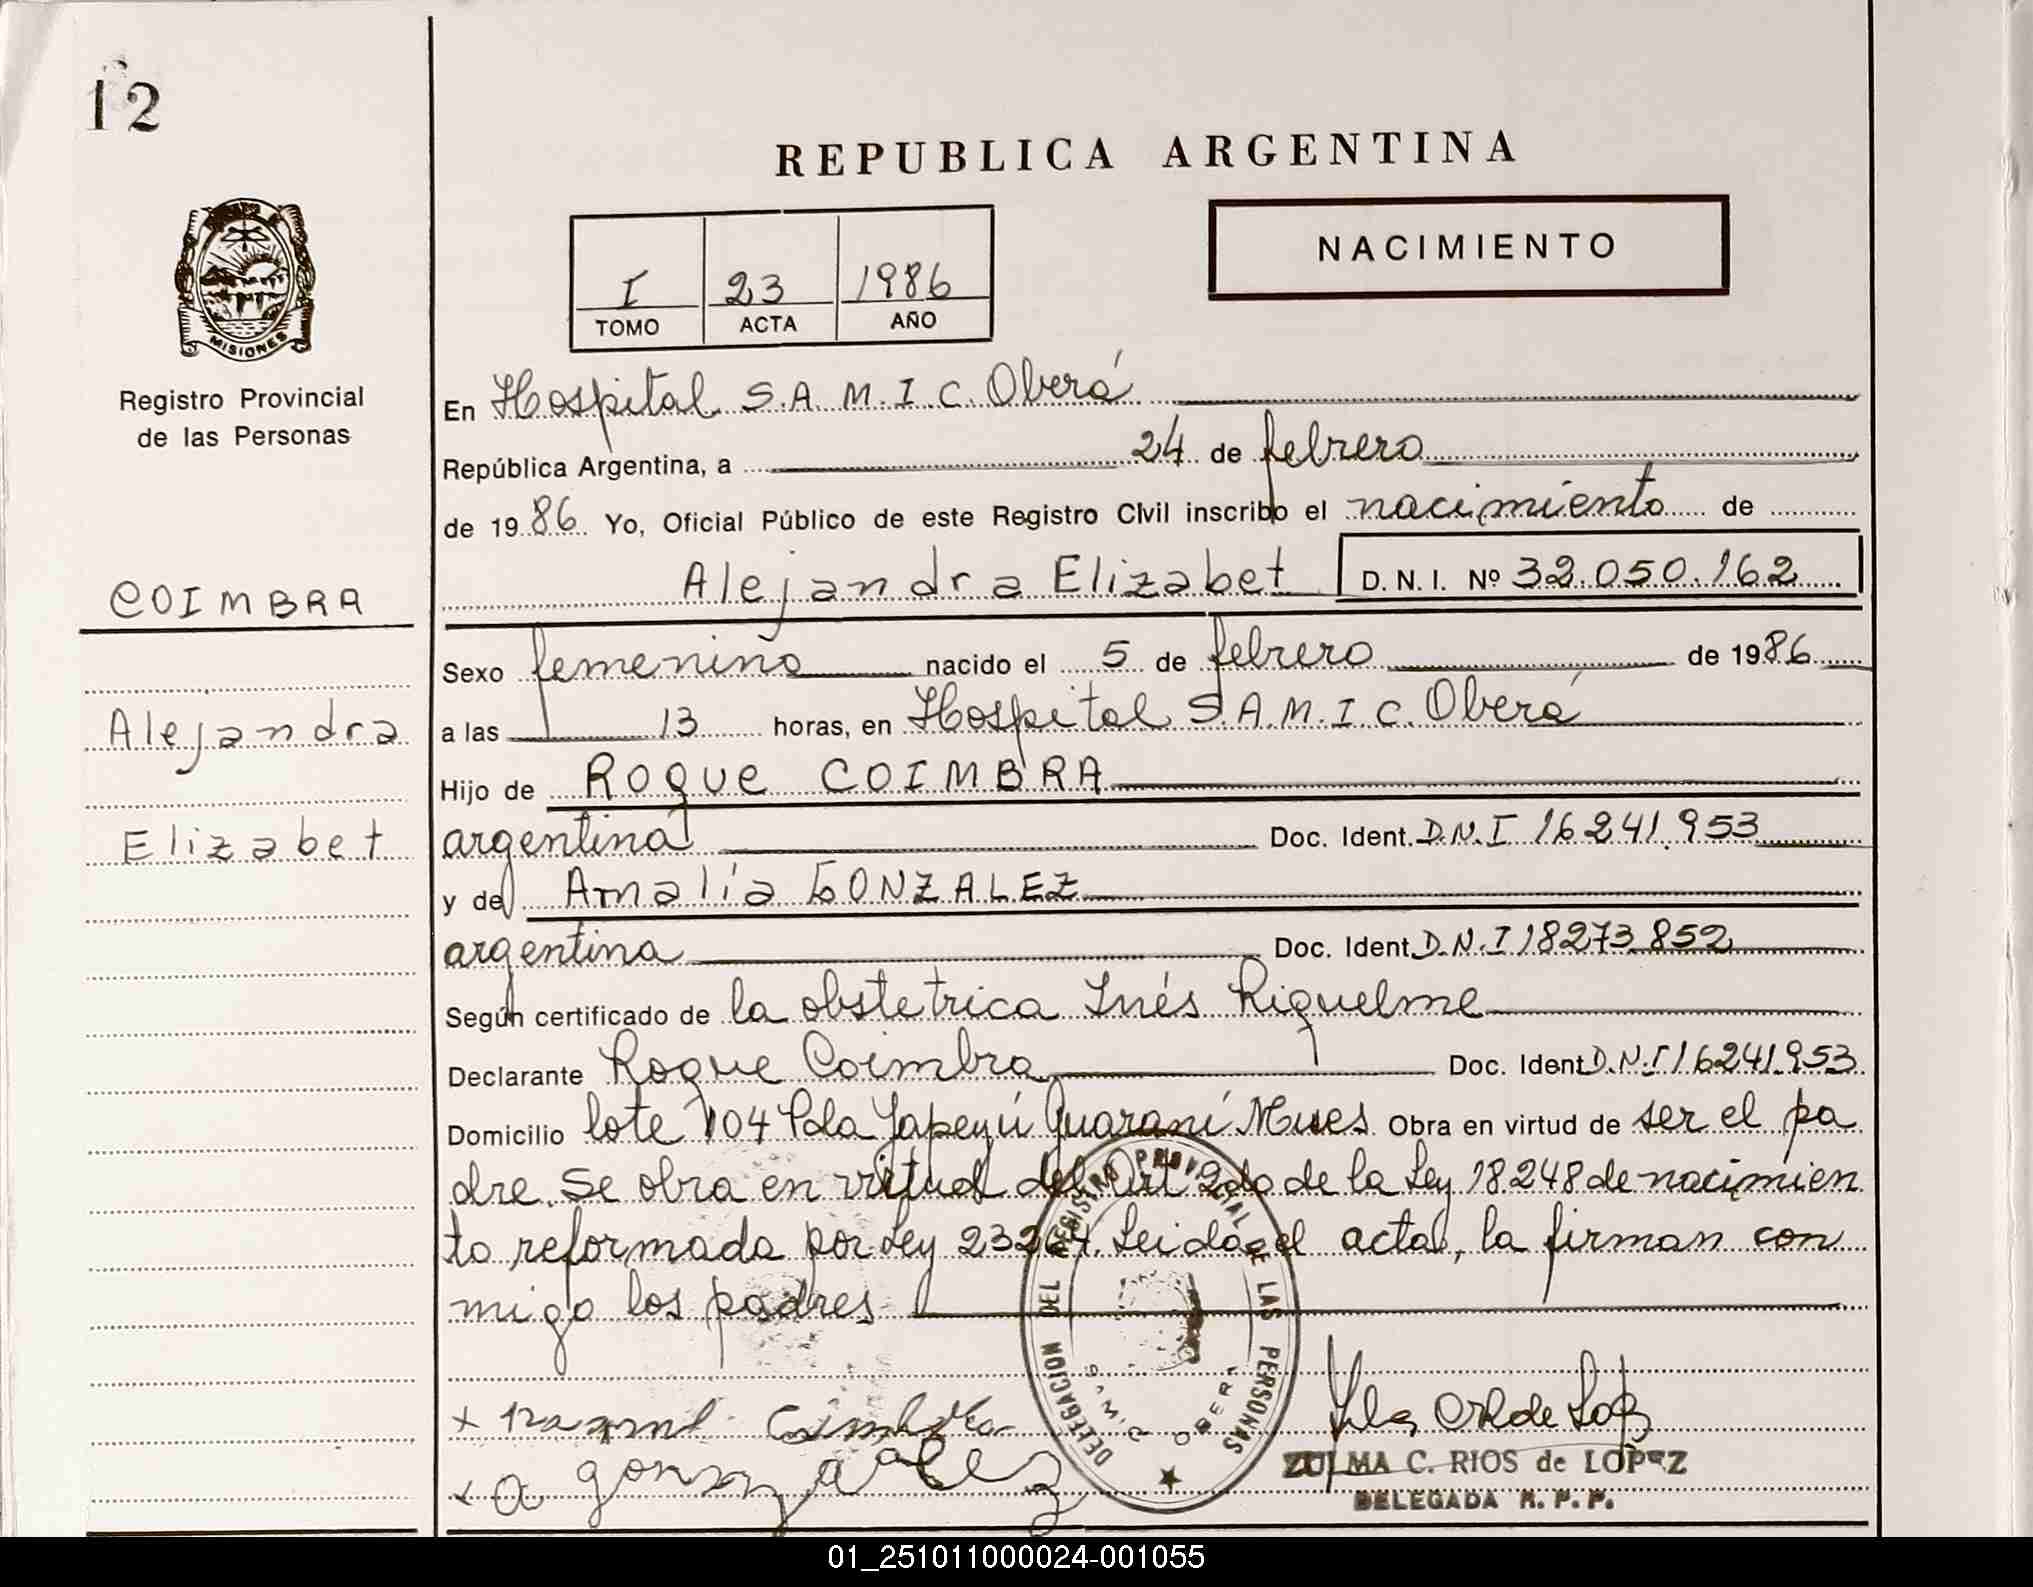 12
REPUBLICA ARGENTINA
NACIMIENTO
I 23 1986
TOMO ACTA AÑO
MISIONES
Registro Provincial
de las Personas
COIMBRA
Alejandra
Elizabet
En Hospital S.A.M.I.C. Oberá
República Argentina, a 24 de febrero
de 1986 Yo, Oficial Público de este Registro Civil inscribo el nacimiento de
Alejandra Elizabet D.N.I. Nº 32.050.162
Sexo femenino nacido el 5 de febrero de 1986
a las 13 horas, en Hospital S.A.M.I.C. Oberá
Hijo de Roque COIMBRA
argentina Doc. Ident. D.N.I 16241.953
y de Amalia GONZALEZ
argentina Doc. Ident. D.N.I 18273.852
Según certificado de la obstetrica Inés Riquelme
Declarante Roque Coimbra Doc. Ident D.N.I 16241.953
Domicilio lote 104 Pda Yapeyú Guaraní Mnes Obra en virtud de ser el pa
dre. Se obra en virtud del Art 2do de la Ley 18.248 de nacimien
to reformada por Ley 23264. Leida el acta, la firman con
migo los padres
DELEGACION DEL REGISTRO PROVINCIAL DE LAS PERSONAS
OBERA
a gonzalez
ZULMA C. RIOS de LOPEZ
DELEGADA R. P. P.
01_251011000024-001055